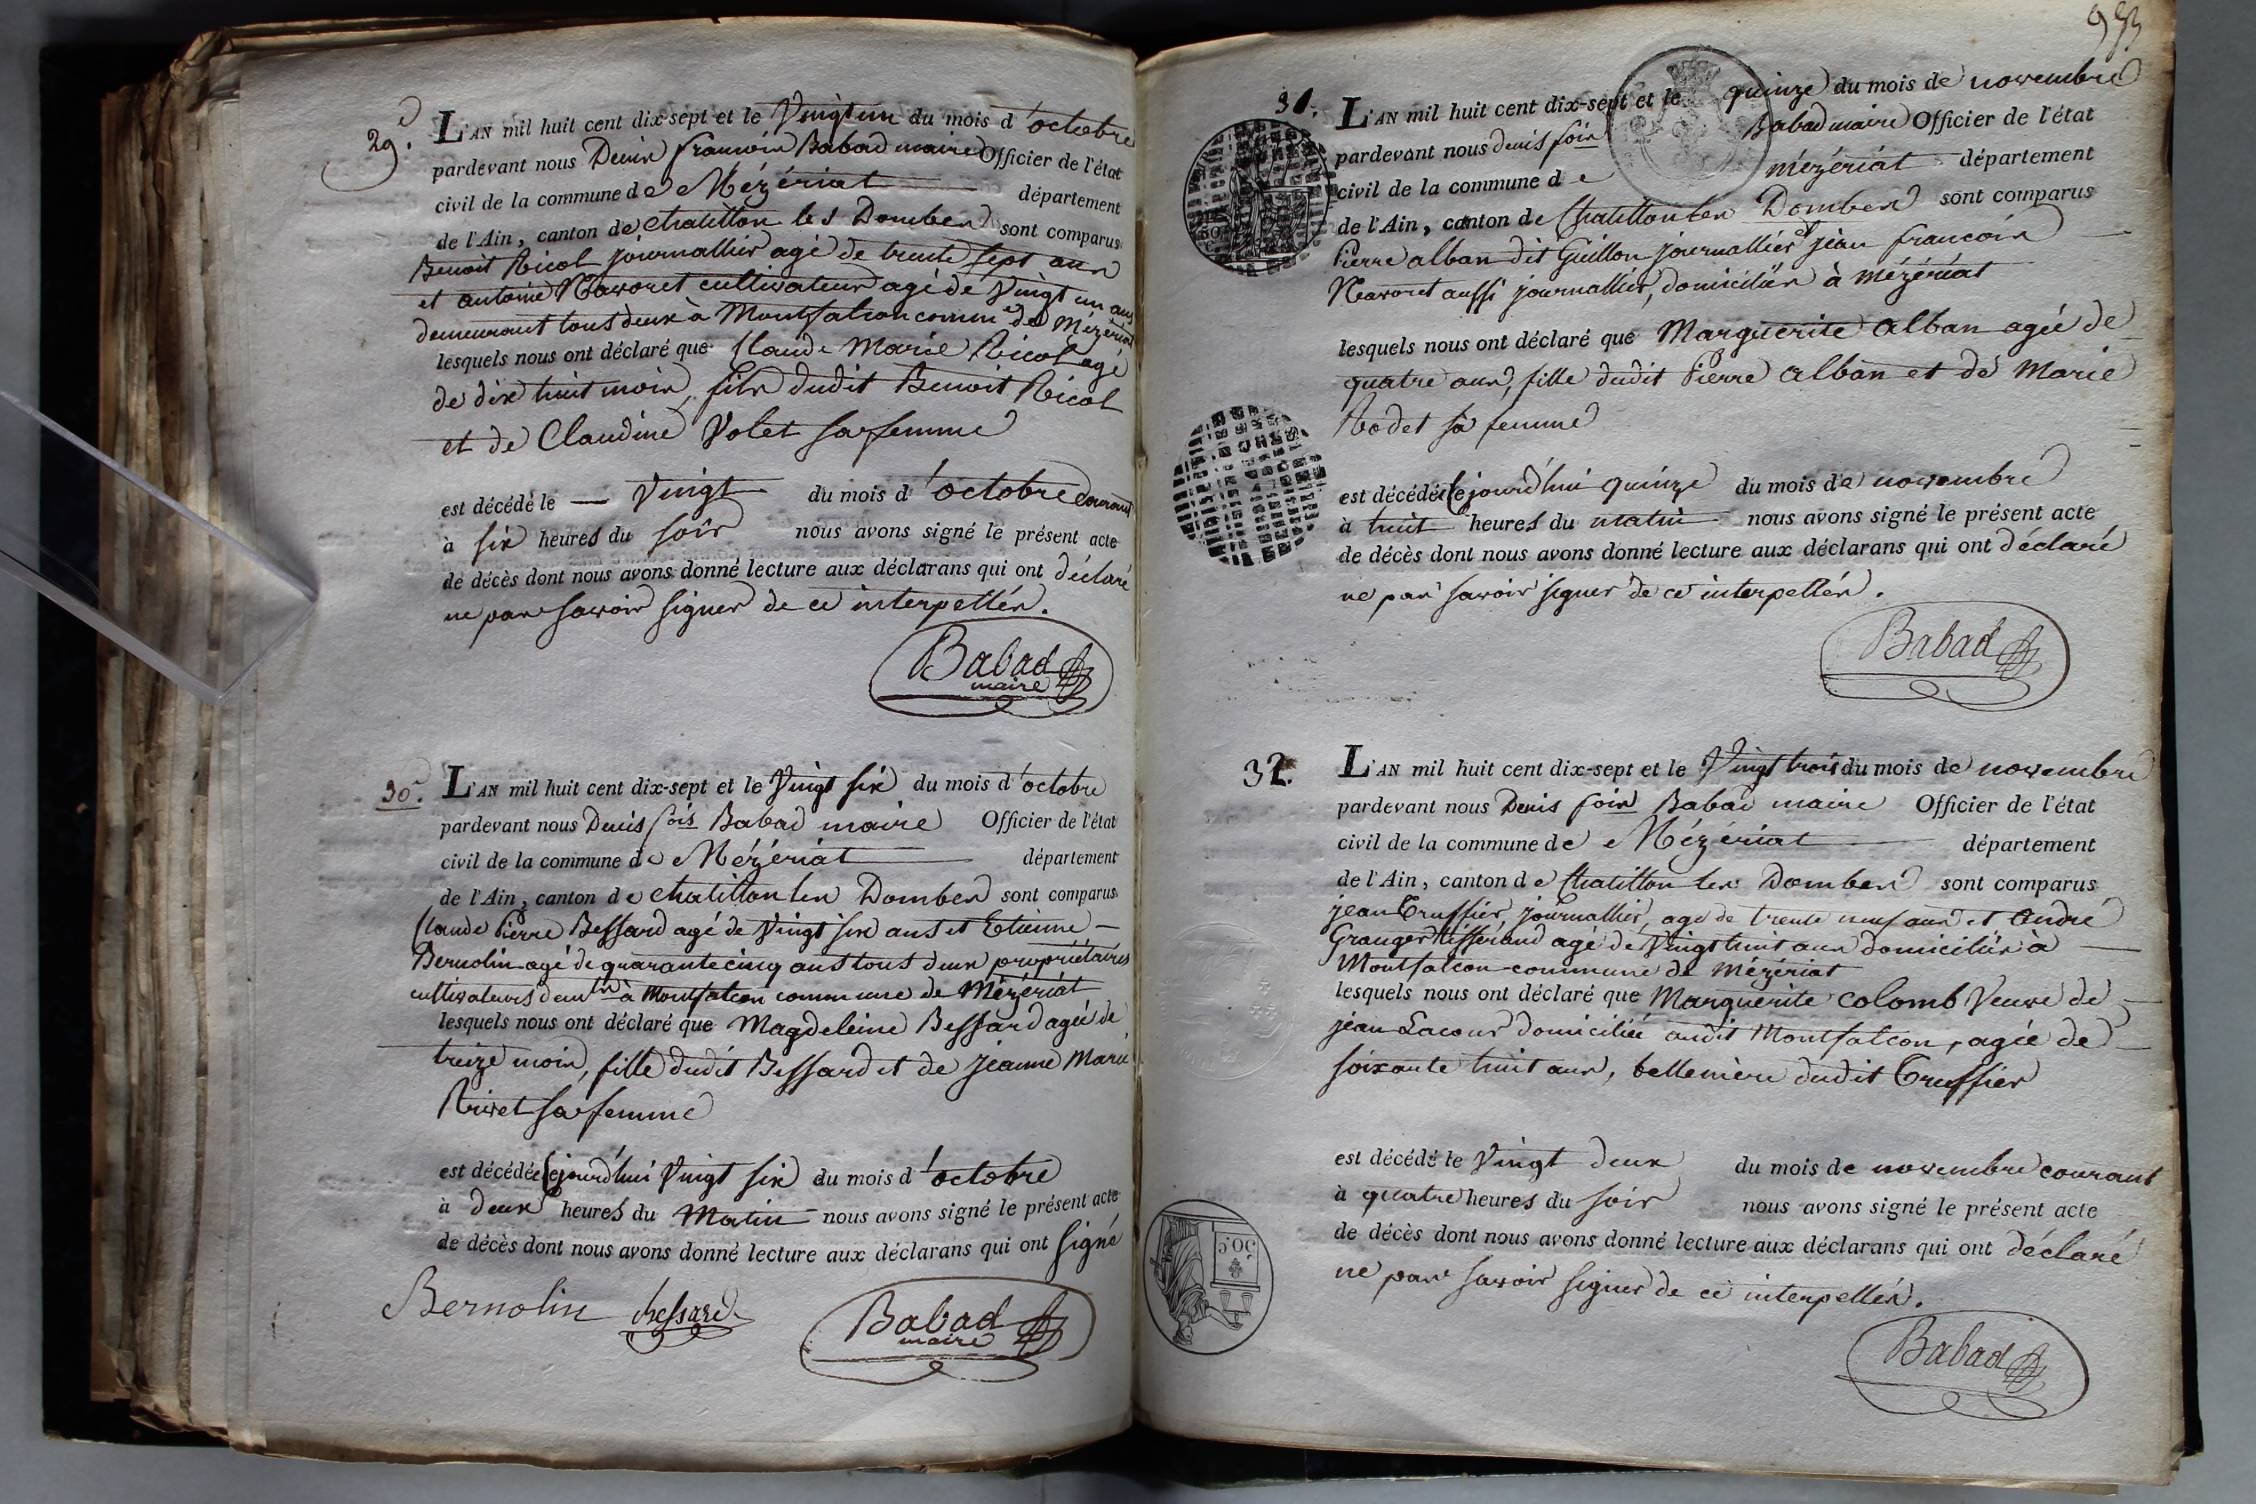 29.
L'AN mil huit cent dix-sept et le Vingt un du mois d'octobre
pardevant nous Denis françois Babad maire Officier de l'état
civil de la commune de Mézériat département
de l'Ain, canton de chatillon les Dombes sont comparus
Benoit Nicol journallier agé de trente sept ans
et antoine Navoret cultivateur agé de Vingt un ans
demeurant tous deux à Montfalcon comm.e de Mézériat
lesquels nous ont déclaré que Claude Marie Nicol agé
de dix huit mois, fils dudit Benoit Nicol
et de Claudine Volet sa femme
est décédé le Vingt du mois d'octobre courant
à six heures du soir nous avons signé le présent acte
de décès dont nous avons donné lecture aux déclarans qui ont déclaré
ne pas savoir signer de ce interpellés.
Babad
maire
30.
L'AN mil huit cent dix-sept et le Vingt six du mois d'octobre
pardevant nous Denis fois Babad maire Officier de l'état
civil de la commune de Mézériat département
de l'Ain, canton de chatillon les Dombes sont comparus
Claude Pierre Bessard agé de Vingt six ans et Etienne
Bernolin agé de quarante cinq ans tous deux propriétaires
cultivateurs à Montfalcon commune de Mézériat
lesquels nous ont déclaré que Magdeleine Bessard agée de
treize mois, fille dudit Bessard et de jeanne Marie
Rivet sa femme
est décédée Cejourd'hui Vingt six du mois d'octobre
à deux heures du Matin nous avons signé le présent acte
de décès dont nous avons donné lecture aux déclarans qui ont signé
Bernolin Bessard Babad
maire
953
31.
L'AN mil huit cent dix-sept et le quinze du mois de novembre
pardevant nous denis fois Babad maire Officier de l'état
civil de la commune de mézériat département
de l'Ain, canton de Chatillon les Dombes sont comparus
Pierre alban dit Guillon journallier et jean francois
Neavoret aussi journallier, domiciliés à mézériat
lesquels nous ont déclaré que Marguerite alban agée de
quatre ans, fille dudit Pierre alban et de Marie
Rodet sa femme
est décédée Cejourd'hui quinze du mois de novembre
à huit heures du matin nous avons signé le présent acte
de décès dont nous avons donné lecture aux déclarans qui ont déclaré
ne pas savoir signer de ce interpellés.
Babad
32.
L'AN mil huit cent dix-sept et le Vingt trois du mois de novembre
pardevant nous Denis fois Babad maire Officier de l'état
civil de la commune de Mézériat département
de l'Ain, canton de Chatillon les Dombes sont comparus
jean Truffier, journallier, agé de trente neuf ans et andré
Granger agé de Vingt huit ans domiciliés à
Montfalcon commune de Mézériat
lesquels nous ont déclaré que Marguerite colomb Veuve de
jean Lacour domiciliée audit Montfalcon, agée de
soixante huit ans, bellemère dudit Truffier
est décédé le Vingt deux du mois de novembre courant
à quatre heures du soir nous avons signé le présent acte
de décès dont nous avons donné lecture aux déclarans qui ont déclaré
ne pas savoir signer de ce interpellés.
Babad